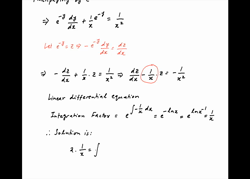 ⇒ e^{-y} dy/dx + 1/x e^{-y} = 1/x²
Let e^{-y} = z ⇒ -e^{-y} dy/dx = dz/dx
⇒ -dz/dx + 1/x . z = 1/x² ⇒ dz/dx - 1/x . z = -1/x²
Linear differential equation
Integration Factor = e^{∫-1/x dx} = e^{-ln x} = e^{ln x^{-1}} = 1/x
∴ Solution is:
z . 1/x = ∫